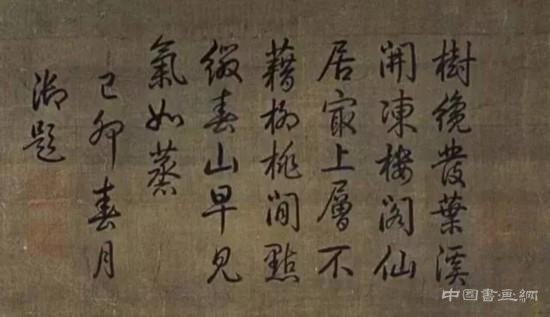 樹纔發葉溪
開凍樓閣仙
居最上層不
藉柳桃閒點
綴春山早見
氣如蒸
己卯春月
御題
中国書画網